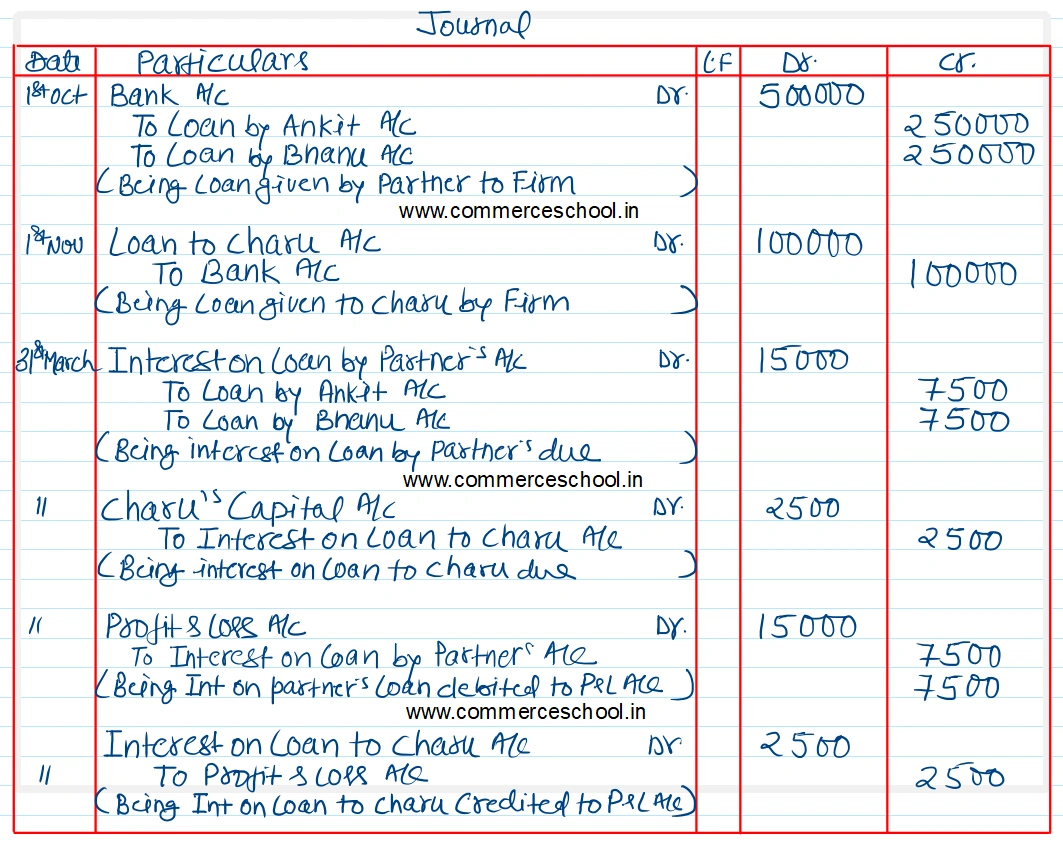 Journal
Date Particulars L.F Dr. Cr.
1st Oct Bank A/c Dr. 500000
To Loan by Ankit A/c 250000
To Loan by Bhanu A/c 250000
(Being Loan given by Partner to Firm)
www.commerceschool.in
1st Nov Loan to Charu A/c Dr. 100000
To Bank A/c 100000
(Being Loan given to Charu by Firm)
31st March Interest on Loan by Partner's A/c Dr. 15000
To Loan by Ankit A/c 7500
To Loan by Bhanu A/c 7500
(Being interest on Loan by Partner's due)
www.commerceschool.in
" Charu's Capital A/c Dr. 2500
To Interest on Loan to Charu A/c 2500
(Being interest on Loan to Charu due)
" Profit & Loss A/c Dr. 15000
To Interest on Loan by Partner's A/c 7500
(Being Int on partner's Loan debited to P&L A/c) 7500
www.commerceschool.in
Interest on Loan to Charu A/c Dr. 2500
" To Profit & Loss A/c 2500
(Being Int on Loan to Charu Credited to P&L A/c)